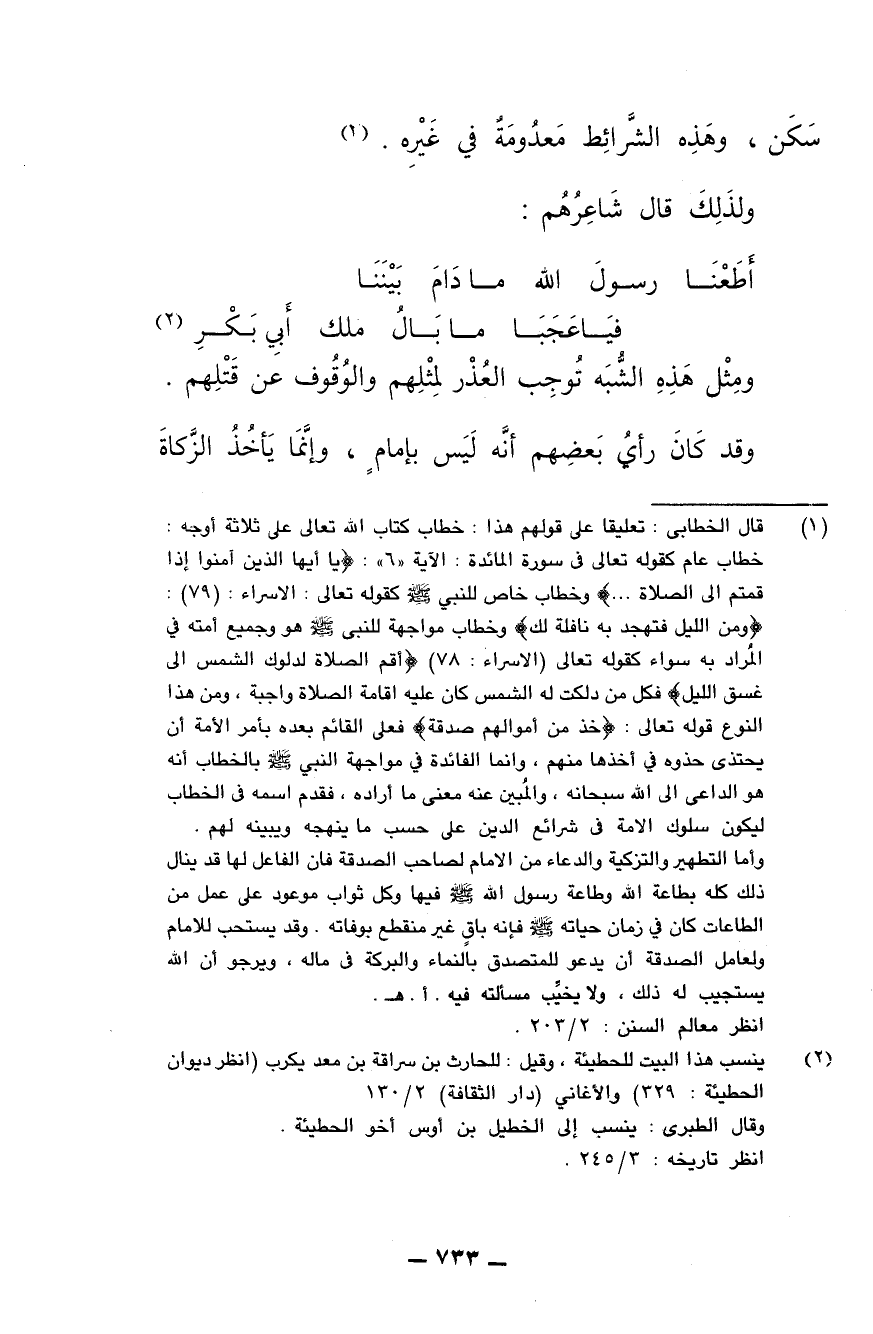 سَكَن ، وهَذِه الشَّرائِط مَعدُومَةٌ في غَيْرِه . (١)
ولذَلِكَ قال شَاعِرُهُم :
أَطَعْنَـــا رســولَ الله مــا دَامَ بَيْنَنَــا
فَيَــاعَجَبَــا مــا بَــالُ ملك أَبي بَـكْــرِ (٢)
ومِثْل هَذِهِ الشُّبَه تُوجِب العُذْر لِمثْلِهم والوُقُوف عن قَتْلِهم .
وقد كَانَ رأيُ بَعضِهم أنَّه لَيَس بإمامٍ ، وإنَّمَا يَأخُذُ الزَّكاةَ
(١) قال الخطابى : تعليقا على قولهم هذا : خطاب كتاب الله تعالى على ثلاثة أوجه :
خطاب عام كقوله تعالى فى سورة المائدة : الآية «٦» : ﴿يا أيها الذين آمنوا إذا
قمتم الى الصلاة ...﴾ وخطاب خاص للنبي ﷺ كقوله تعالى : الاسراء : (٧٩) :
﴿ومن الليل فتهجد به نافلة لك﴾ وخطاب مواجهة للنبى ﷺ هو وجميع أمته في
المُراد به سواء كقوله تعالى (الاسراء : ٧٨) ﴿أقم الصلاة لدلوك الشمس الى
غسق الليل﴾ فكل من دلكت له الشمس كان عليه اقامة الصلاة واجبة ، ومن هذا
النوع قوله تعالى : ﴿خذ من أموالهم صدقة﴾ فعلى القائم بعده بأمر الأمة أن
يحتذى حذوه في أخذها منهم ، وانما الفائدة في مواجهة النبي ﷺ بالخطاب أنه
هو الداعى الى الله سبحانه ، والمُبين عنه معنى ما أراده ، فقدم اسمه فى الخطاب
ليكون سلوك الامة فى شرائع الدين على حسب ما ينهجه ويبينه لهم .
وأما التطهير والتزكية والدعاء من الامام لصاحب الصدقة فان الفاعل لها قد ينال
ذلك كله بطاعة الله وطاعة رسول الله ﷺ فيها وكل ثواب موعود على عمل من
الطاعات كان في زمان حياته ﷺ فإنه باقٍ غير منقطع بوفاته . وقد يستحب للامام
ولعامل الصدقة أن يدعو للمتصدق بالنماء والبركة فى ماله ، ويرجو أن الله
يستجيب له ذلك ، ولا يخيِّب مسألته فيه . أ . هـ .
انظر معالم السنن : ٢٠٣/٢ .
(٢) ينسب هذا البيت للحطيئة ، وقيل : للحارث بن سراقة بن معد يكرب (انظر ديوان
الحطيئة : ٣٢٩) والأغاني (دار الثقافة) ١٣٠/٢
وقال الطبرى : ينسب إلى الخطيل بن أوس أخو الحطيئة .
انظر تاريخه : ٢٤٥/٣ .
– ٧٣٣ –